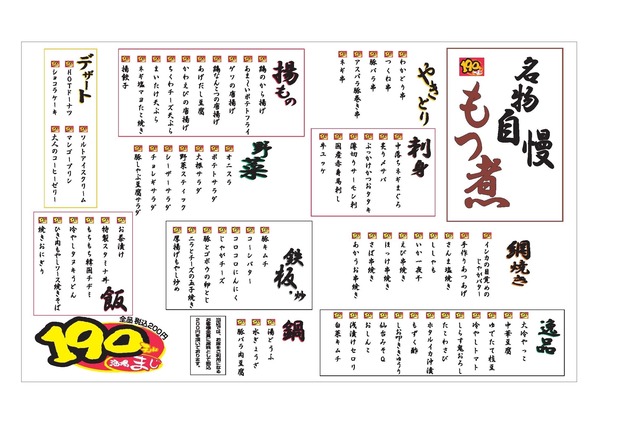 名物
自慢
もつ煮
やきとり
わかどり串
つくね串
豚バラ串
アスパラ豚巻き串
ネギ串
揚もの
鶏のから揚げ
あま〜いポテトフライ
ゲソの唐揚げ
鶏なんこつの唐揚げ
あげだし豆腐
かわえびの唐揚げ
ちくわチーズ天ぷら
まいたけ天ぷら
ネギ塩マヨたこ焼き
揚餃子
デザート
HOTドーナツ
ショコラケーキ
ソルトアイスクリーム
マンゴープリン
大人のコーヒーゼリー
刺身
中落ちネギまぐろ
炙りメサバ
ぶっかけかつおタタキ
薄切りサーモン刺
国産赤身馬刺し
牛ユッケ
野菜
オニスラ
ポテトサラダ
大根サラダ
野菜スティック
シーザーサラダ
チョレギサラダ
豚しゃぶ豆腐サラダ
網焼き
インカの目覚めの
じゃがバター
手作りあつあげ
さんま塩焼き
ししゃも
いか一夜干
えび串焼き
ほっけ串焼き
さば串焼き
あかうお串焼き
鉄板・炒
豚キムチ
コーンバター
コロコロにんにく
じゃがチーズ
豚とゴボウの卵とじ
ニラとチーズの玉子焼き
厚揚げもやし炒め
飯
お茶漬け
特製スタミナ丼
もちもち韓国チヂミ
冷やしタヌキうどん
ひき肉もやしソース焼きそば
焼きおにぎり
逸品
大冷やっこ
中華豆腐
ゆでたて枝豆
冷やしトマト
しらす鬼おろし
たこわさび
ホタルイカ沖漬
もずく酢
仙台みそQ
おしんこ
浅漬けセロリ
白菜キムチ
鍋
湯どうふ
水ぎょうざ
豚バラ肉豆腐
全品 税込200円
190
酒場
まじ